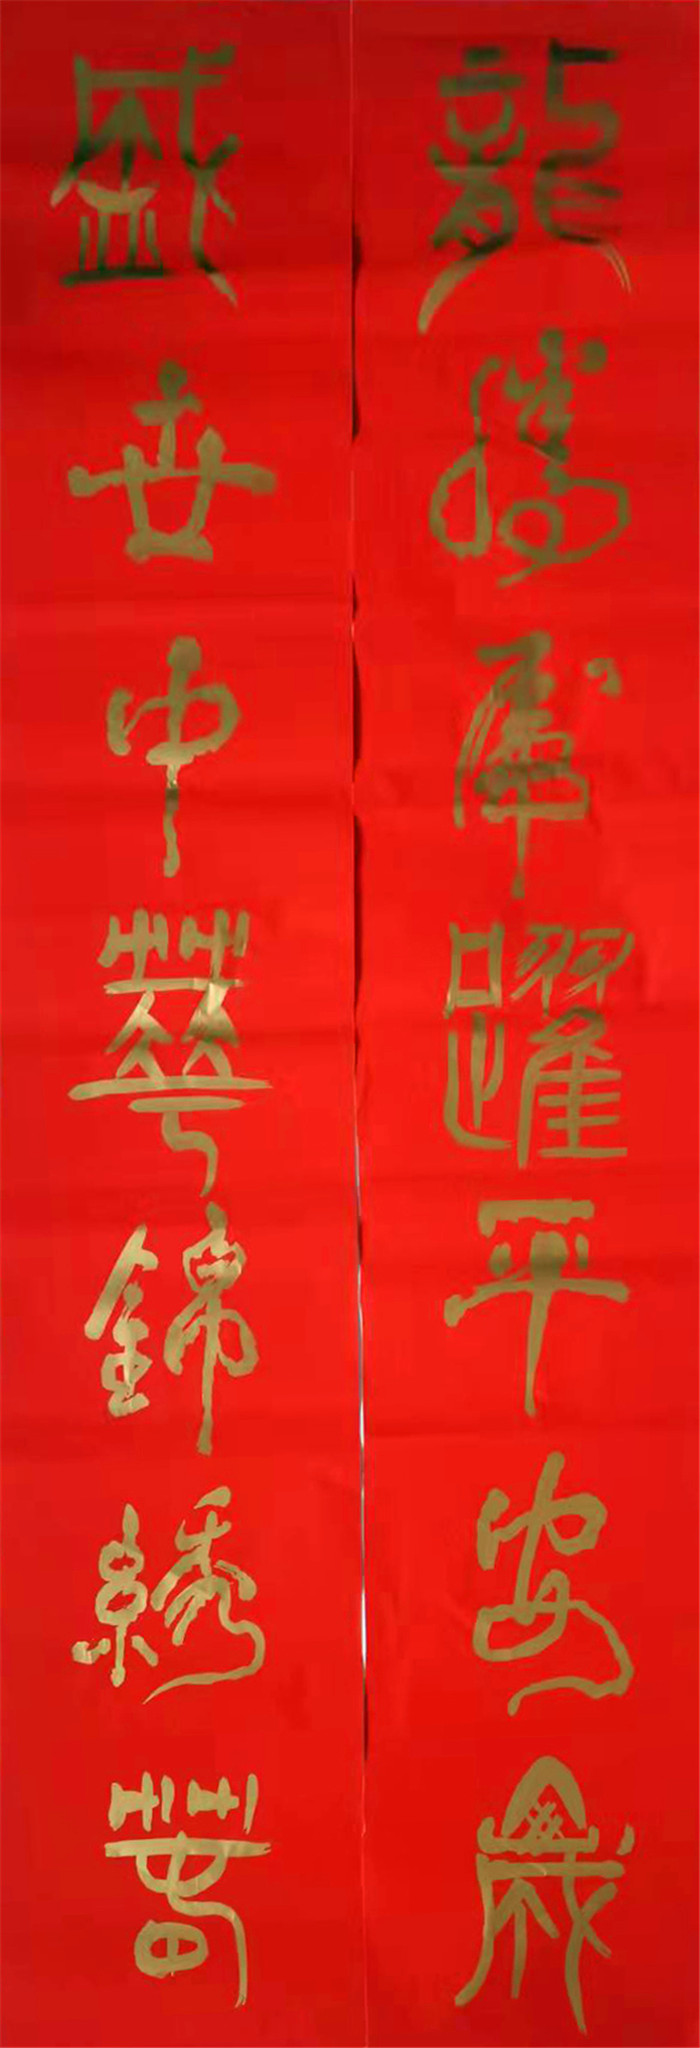 龍騰虎躍平安歲
盛世中華錦綉春